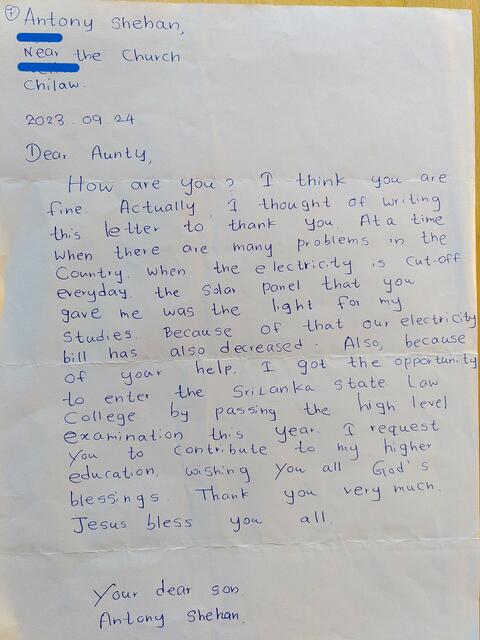 7
Antony Shehan,
Near the Church
Chilaw.
2023.09.24
Dear Aunty,
How are you? I think you are
fine. Actually, I thought of writing
this letter to thank you. At a time
when there are many problems in the
Country. when the electricity is cut-off
everyday. the solar panel that you
gave me was the light for my
studies. Because of that our electricity
bill has also decreased. Also, because
of your help. I got the opportunity
to enter the SriLanka state Law
College by passing the high level
examination this year. I request
you to contribute to my higher
education. wishing you all God's
blessings. Thank you very much.
Jesus bless you all.
Your dear son
Antony Shehan.